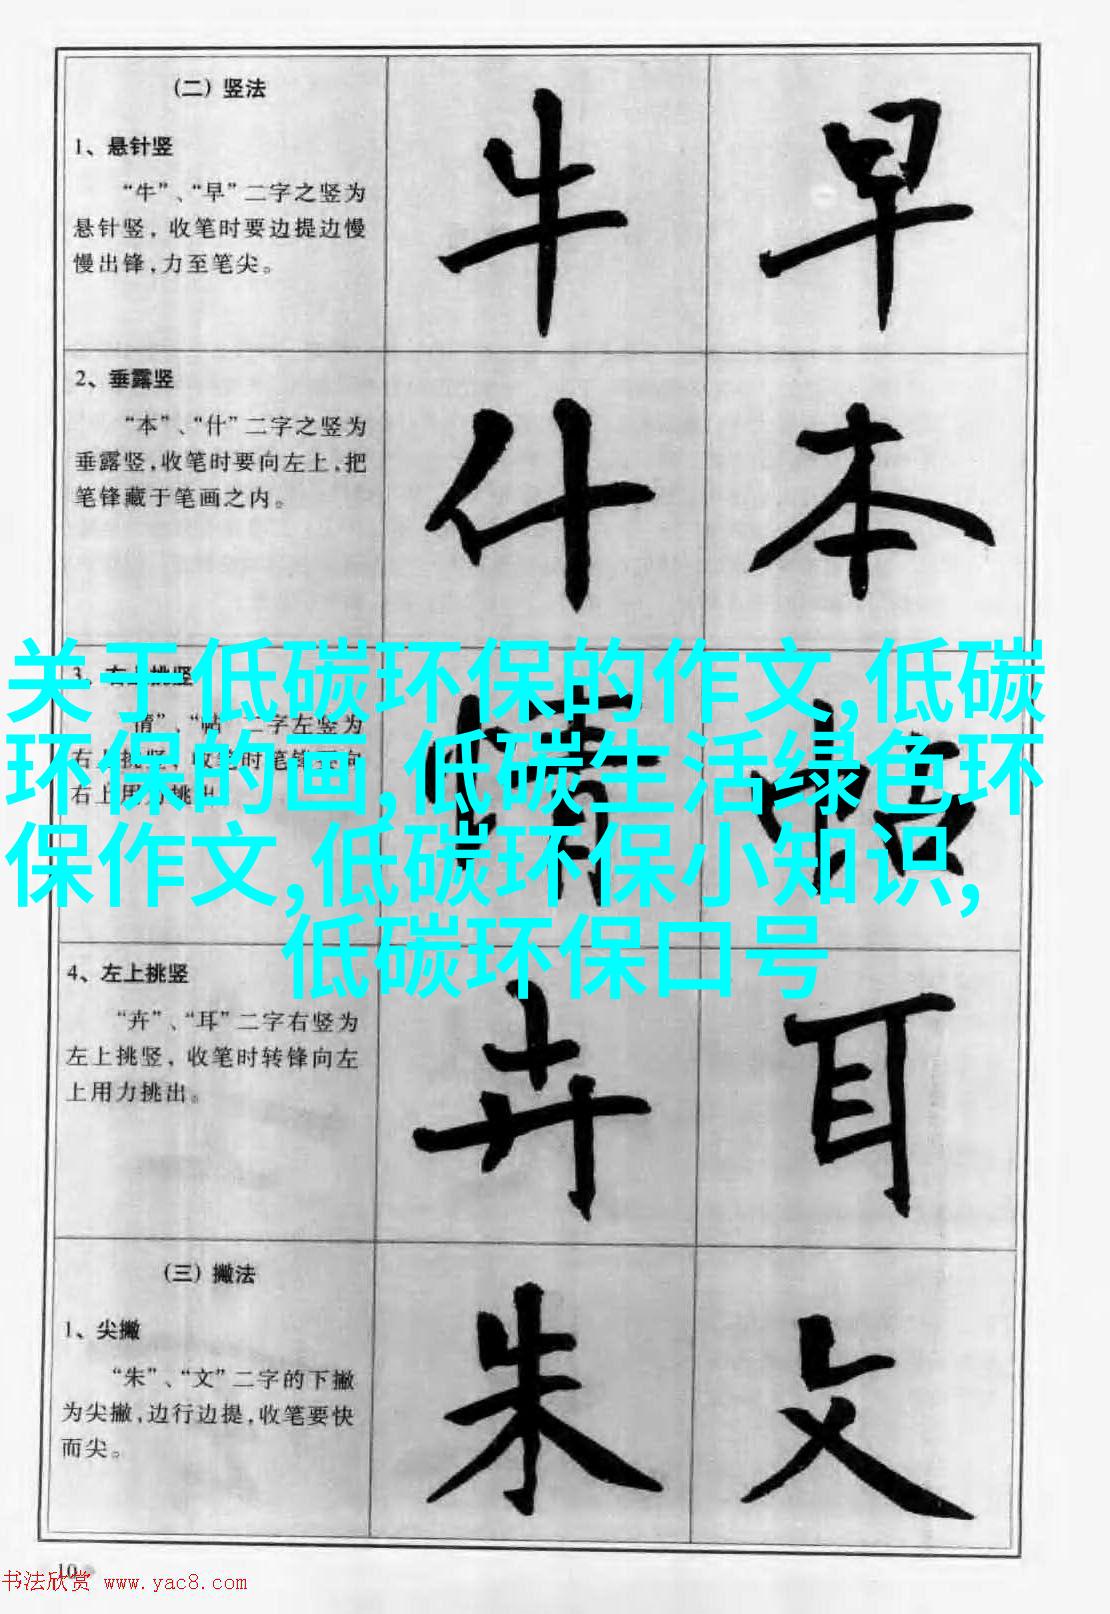 (二) 竖法
1、悬针竖
“牛”、“早”二字之竖为
悬针竖，收笔时要边提边慢
慢出锋，力至笔尖。
牛 早
2、垂露竖
“本”、“什”二字之竖为
垂露竖，收笔时要向左上，把
笔锋藏于笔画之内。
什 本
3、右上挑竖
“情”、“帖”二字左竖为
右上挑竖，收笔时笔锋要向
右上用力挑出。
情 帖
关于低碳环保的作文,低碳
环保的画,低碳生活绿色环
保作文,低碳环保小知识,
低碳环保口号
4、左上挑竖
“卉”、“耳”二字右竖为
左上挑竖，收笔时转锋向左
上用力挑出。
卉 耳
(三) 撇法
1、尖撇
“朱”、“文”二字的下撇
为尖撇，边行边提，收笔要快
而尖。
朱 文
10
书法欣赏 www.yac8.com